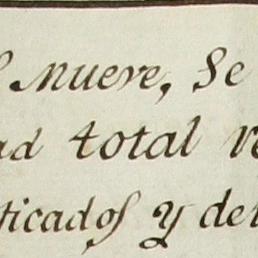 Nueve, Se
ad total re
ticados y del